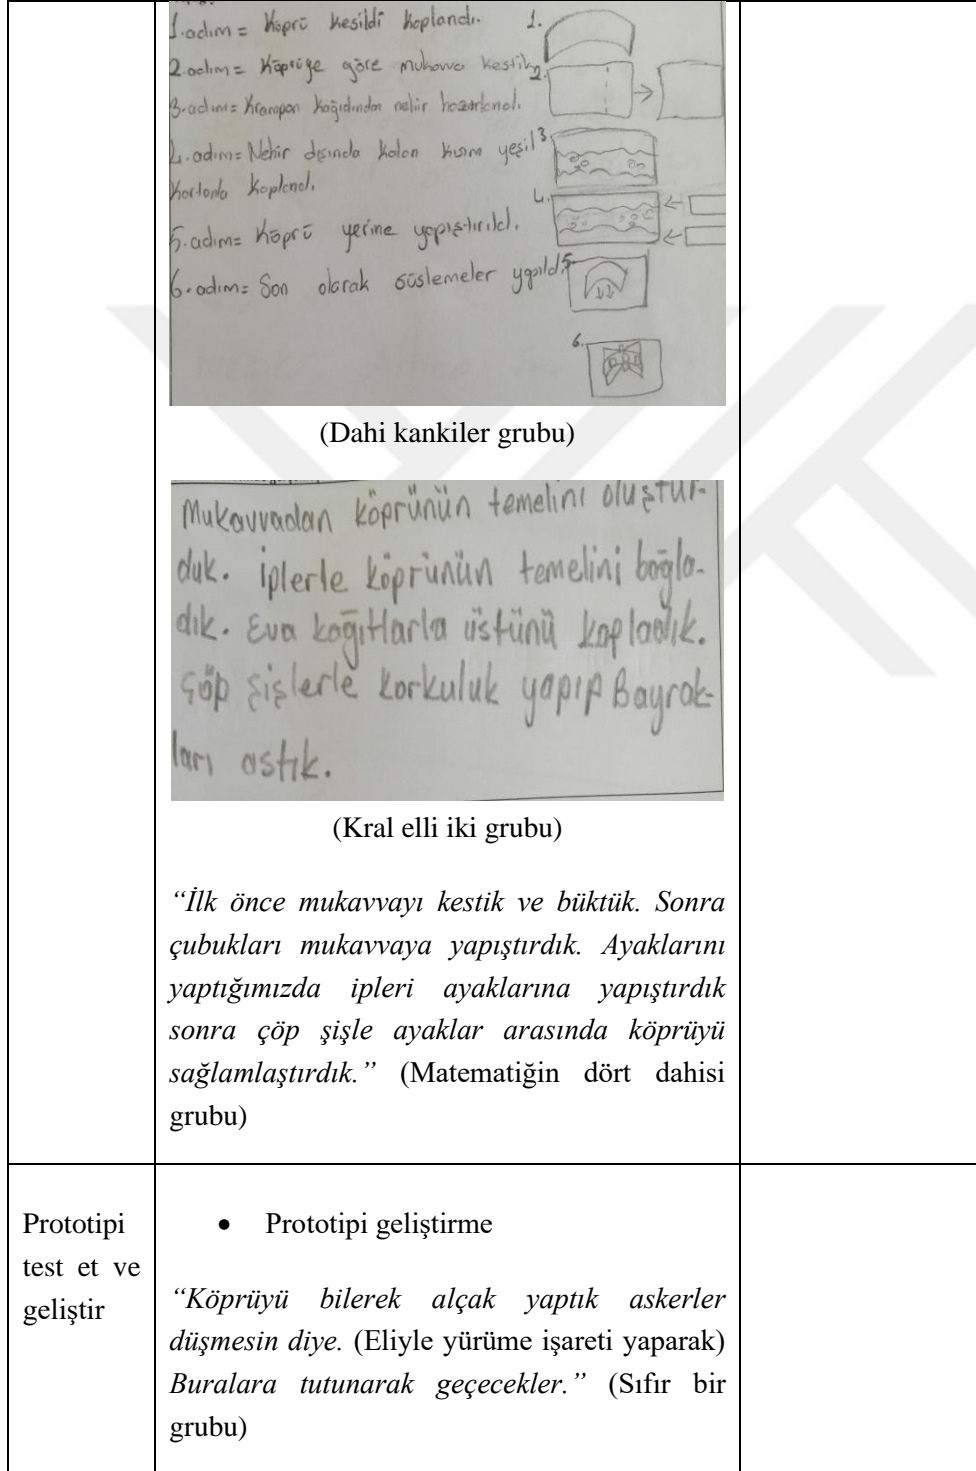 1.adım = Köprü kesildi koplandı.
2.adım = Köprüye göre mukavva kestik
3.adım = Krampon kağıdından nehir hazırlandı.
4.adım = Nehir dışında kalan kısım yeşil
kartonla koplandı.
5.adım = Köprü yerine yapıştırıldı.
6.adım = Son olarak süslemeler yapıldı.
1.
2.
3.
4.
5.
6.
(Dahi kankiler grubu)
Mukavvadan köprünün temelini oluştur-
duk. İplerle köprünün temelini bağla-
dık. Eva kağıtlarla üstünü kapladık.
Çöp şişlerle korkuluk yapıp Bayrak-
ları astık.
(Kral elli iki grubu)
“İlk önce mukavvayı kestik ve büktük. Sonra
çubukları mukavvaya yapıştırdık. Ayaklarını
yaptığımızda ipleri ayaklarına yapıştırdık
sonra çöp şişle ayaklar arasında köprüyü
sağlamlaştırdık.” (Matematiğin dört dahisi
grubu)
Prototipi
test et ve
geliştir
• Prototipi geliştirme
“Köprüyü bilerek alçak yaptık askerler
düşmesin diye. (Eliyle yürüme işareti yaparak)
Buralara tutunarak geçecekler.” (Sıfır bir
grubu)